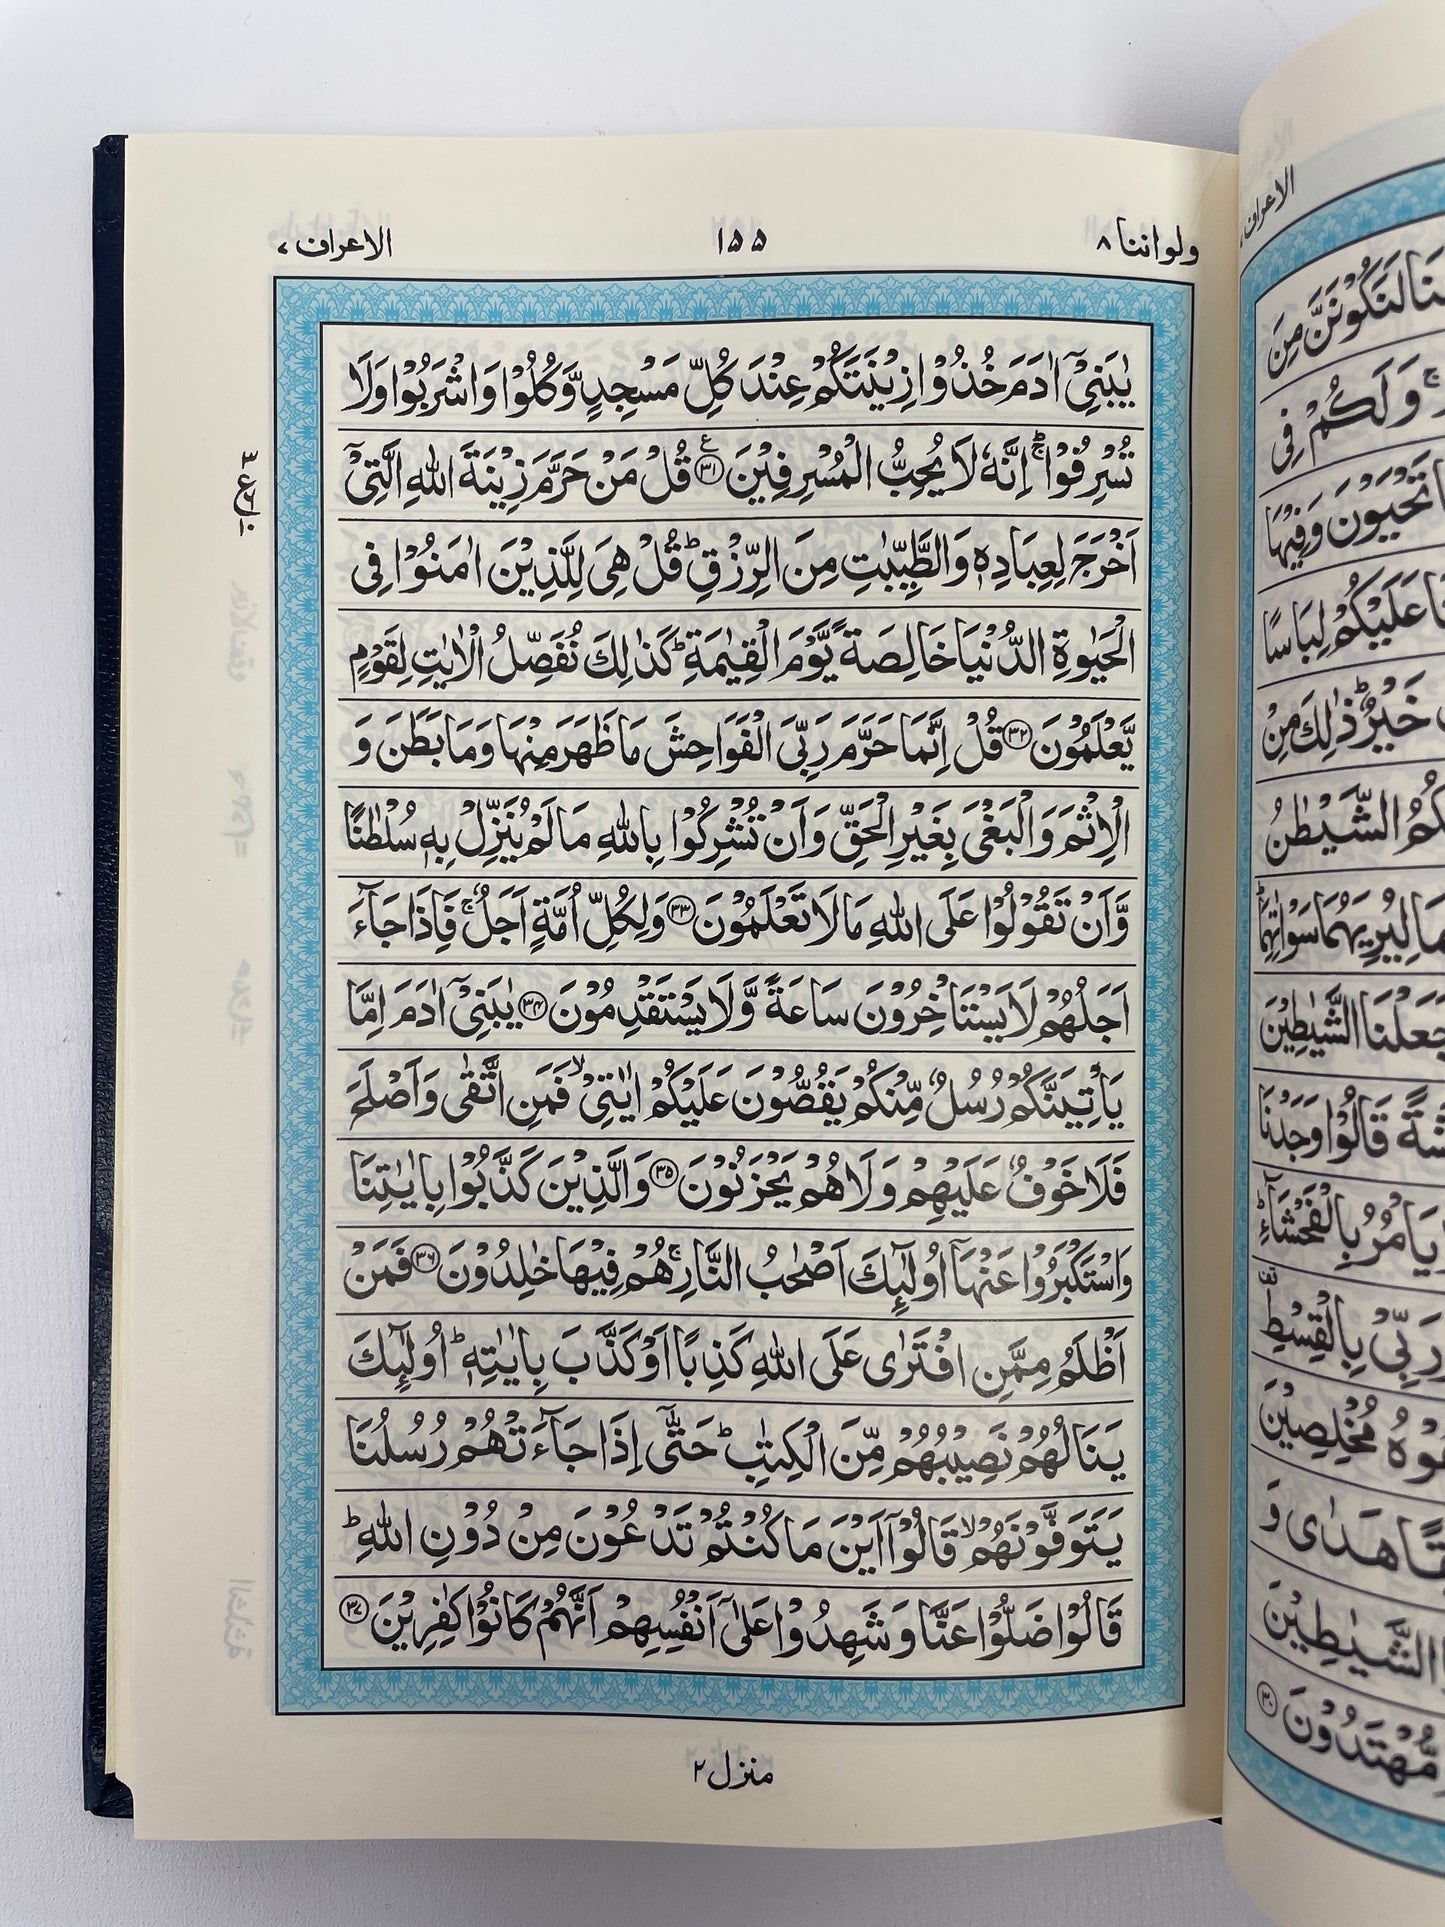 ولواننا ٨
١٥٥
الاعراف ٧
يٰبَنِيْۤ اٰدَمَ خُذُوْا زِيْنَتَكُمْ عِنْدَ كُلِّ مَسْجِدٍ وَّكُلُوْا وَاشْرَبُوْا وَلَا
تُسْرِفُوْا ۚ اِنَّهٗ لَا يُحِبُّ الْمُسْرِفِيْنَ ﴿٣١﴾ ع قُلْ مَنْ حَرَّمَ زِيْنَةَ اللهِ الَّتِيْۤ
اَخْرَجَ لِعِبَادِهٖ وَالطَّيِّبٰتِ مِنَ الرِّزْقِ ؕ قُلْ هِيَ لِلَّذِيْنَ اٰمَنُوْا فِي
الْحَيٰوةِ الدُّنْيَا خَالِصَةً يَّوْمَ الْقِيٰمَةِ ؕ كَذٰلِكَ نُفَصِّلُ الْاٰيٰتِ لِقَوْمٍ
يَّعْلَمُوْنَ ﴿٣٢﴾ قُلْ اِنَّمَا حَرَّمَ رَبِّيَ الْفَوَاحِشَ مَا ظَهَرَ مِنْهَا وَمَا بَطَنَ وَ
الْاِثْمَ وَالْبَغْيَ بِغَيْرِ الْحَقِّ وَاَنْ تُشْرِكُوْا بِاللهِ مَا لَمْ يُنَزِّلْ بِهٖ سُلْطٰنًا
وَّاَنْ تَقُوْلُوْا عَلَى اللهِ مَا لَا تَعْلَمُوْنَ ﴿٣٣﴾ وَلِكُلِّ اُمَّةٍ اَجَلٌ ۚ فَاِذَا جَآءَ
اَجَلُهُمْ لَا يَسْتَاْخِرُوْنَ سَاعَةً وَّلَا يَسْتَقْدِمُوْنَ ﴿٣٤﴾ يٰبَنِيْۤ اٰدَمَ اِمَّا
يَاْتِيَنَّكُمْ رُسُلٌ مِّنْكُمْ يَقُصُّوْنَ عَلَيْكُمْ اٰيٰتِيْ ۙ فَمَنِ اتَّقٰى وَاَصْلَحَ
فَلَا خَوْفٌ عَلَيْهِمْ وَلَا هُمْ يَحْزَنُوْنَ ﴿٣٥﴾ وَالَّذِيْنَ كَذَّبُوْا بِاٰيٰتِنَا
وَاسْتَكْبَرُوْا عَنْهَاۤ اُولٰٓئِكَ اَصْحٰبُ النَّارِ ۚ هُمْ فِيْهَا خٰلِدُوْنَ ﴿٣٦﴾ فَمَنْ
اَظْلَمُ مِمَّنِ افْتَرٰى عَلَى اللهِ كَذِبًا اَوْ كَذَّبَ بِاٰيٰتِهٖ ؕ اُولٰٓئِكَ
يَنَالُهُمْ نَصِيْبُهُمْ مِّنَ الْكِتٰبِ ؕ حَتّٰۤى اِذَا جَآءَتْهُمْ رُسُلُنَا
يَتَوَفَّوْنَهُمْ ۙ قَالُوْۤا اَيْنَ مَا كُنْتُمْ تَدْعُوْنَ مِنْ دُوْنِ اللهِ ؕ
قَالُوْا ضَلُّوْا عَنَّا وَشَهِدُوْا عَلٰۤى اَنْفُسِهِمْ اَنَّهُمْ كَانُوْا كٰفِرِيْنَ ﴿٣٧﴾
منزل ٢
الاعراف ٧
لَنَكُوْنَنَّ مِنَ
وَلَكُمْ فِي
تَحْيَوْنَ وَفِيْهَا
عَلَيْكُمْ لِبَاسًا
خَيْرٌ ؕ ذٰلِكَ مِنْ
الشَّيْطٰنُ
لِيُرِيَهُمَا سَوْاٰتِهِمَا ؕ
جَعَلْنَا الشَّيٰطِيْنَ
قَالُوْا وَجَدْنَا
يَاْمُرُ بِالْفَحْشَآءِ ؕ
رَبِّيْ بِالْقِسْطِ
مُخْلِصِيْنَ
هَدٰى وَ
الشَّيٰطِيْنَ
مُّهْتَدُوْنَ ﴿٣٠﴾